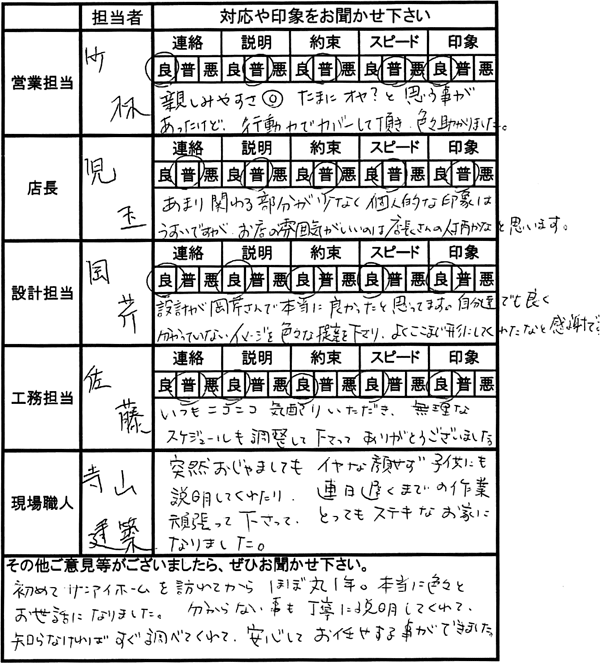 担当者 対応や印象をお聞かせ下さい
営業担当 竹林
連絡 説明 約束 スピード 印象
良 普 悪 良 普 悪 良 普 悪 良 普 悪 良 普 悪
親しみやすさ◎ たまにオヤ?と思う事が
あったけど、行動力でカバーして頂き、色々助かりました。
店長 児玉
連絡 説明 約束 スピード 印象
良 普 悪 良 普 悪 良 普 悪 良 普 悪 良 普 悪
あまり関わる部分が少なく個人的な印象は
うすいですが、お店の雰囲気がいいのは店長さんの人柄かなと思います。
設計担当 岡芹
連絡 説明 約束 スピード 印象
良 普 悪 良 普 悪 良 普 悪 良 普 悪 良 普 悪
設計が岡芹さんで本当に良かったと思ってます。自分達でも良く
分かっていないイメージを色々な提案を下さり、よくここまで形にしてくれたなと感謝です
工務担当 佐藤
連絡 説明 約束 スピード 印象
良 普 悪 良 普 悪 良 普 悪 良 普 悪 良 普 悪
いつもニコニコ 気配りいただき、無理な
スケジュールも調整して下さって ありがとうございました
現場職人 寺山建築
突然おじゃましても イヤな顔せず 子供にも
説明してくれたり、連日遅くまでの作業
頑張って下さって、とってもステキなお家に
なりました。
その他ご意見等がございましたら、ぜひお聞かせ下さい。
初めてケニアイホームを訪れてから ほぼ丸1年。本当に色々と
お世話になりました。分からない事も丁寧に説明してくれて、
知らなければすぐ調べてくれて、安心してお任せする事ができました。